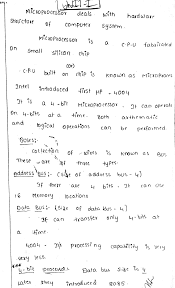 UNIT-I
Microprocessor deals with hardware
structure of computer system.
Microprocessor is a C.P.U fabricated
on small silicon chip
(or)
C.P.U built on chip is known as
Intel introduced first μP - 4004
It is a 4-bit Microprocessor. It can operate
on 4-bits at a time. Both arithmetic
and logical operations can be performed
Buses:
collection of wires is known as Bus
These are of three types.
address bus: (size of address bus - 4)
If there are 4 bits. It can use
16 Memory locations
Data Bus: (size of data bus - 4)
It can transfer only 4-bits at
a time.
4004 - processing capability is very
very less.
Data bus size is
later they introduced 8085.